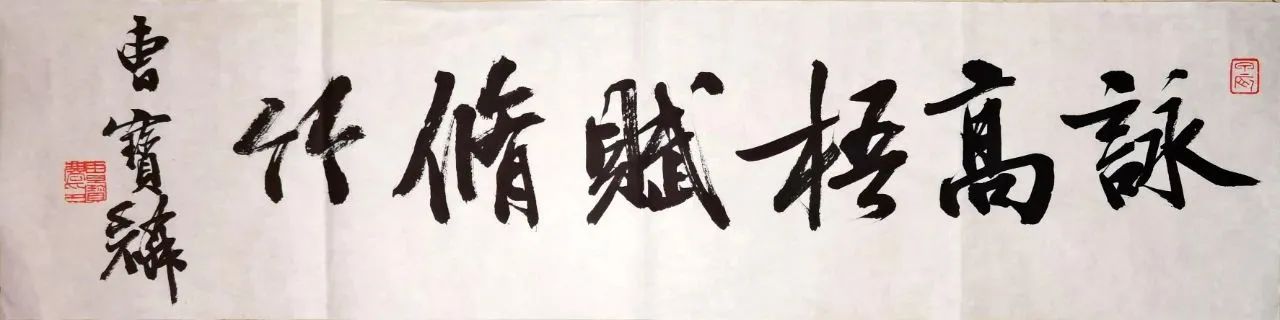 詠高梧賦脩竹
曹寶麟